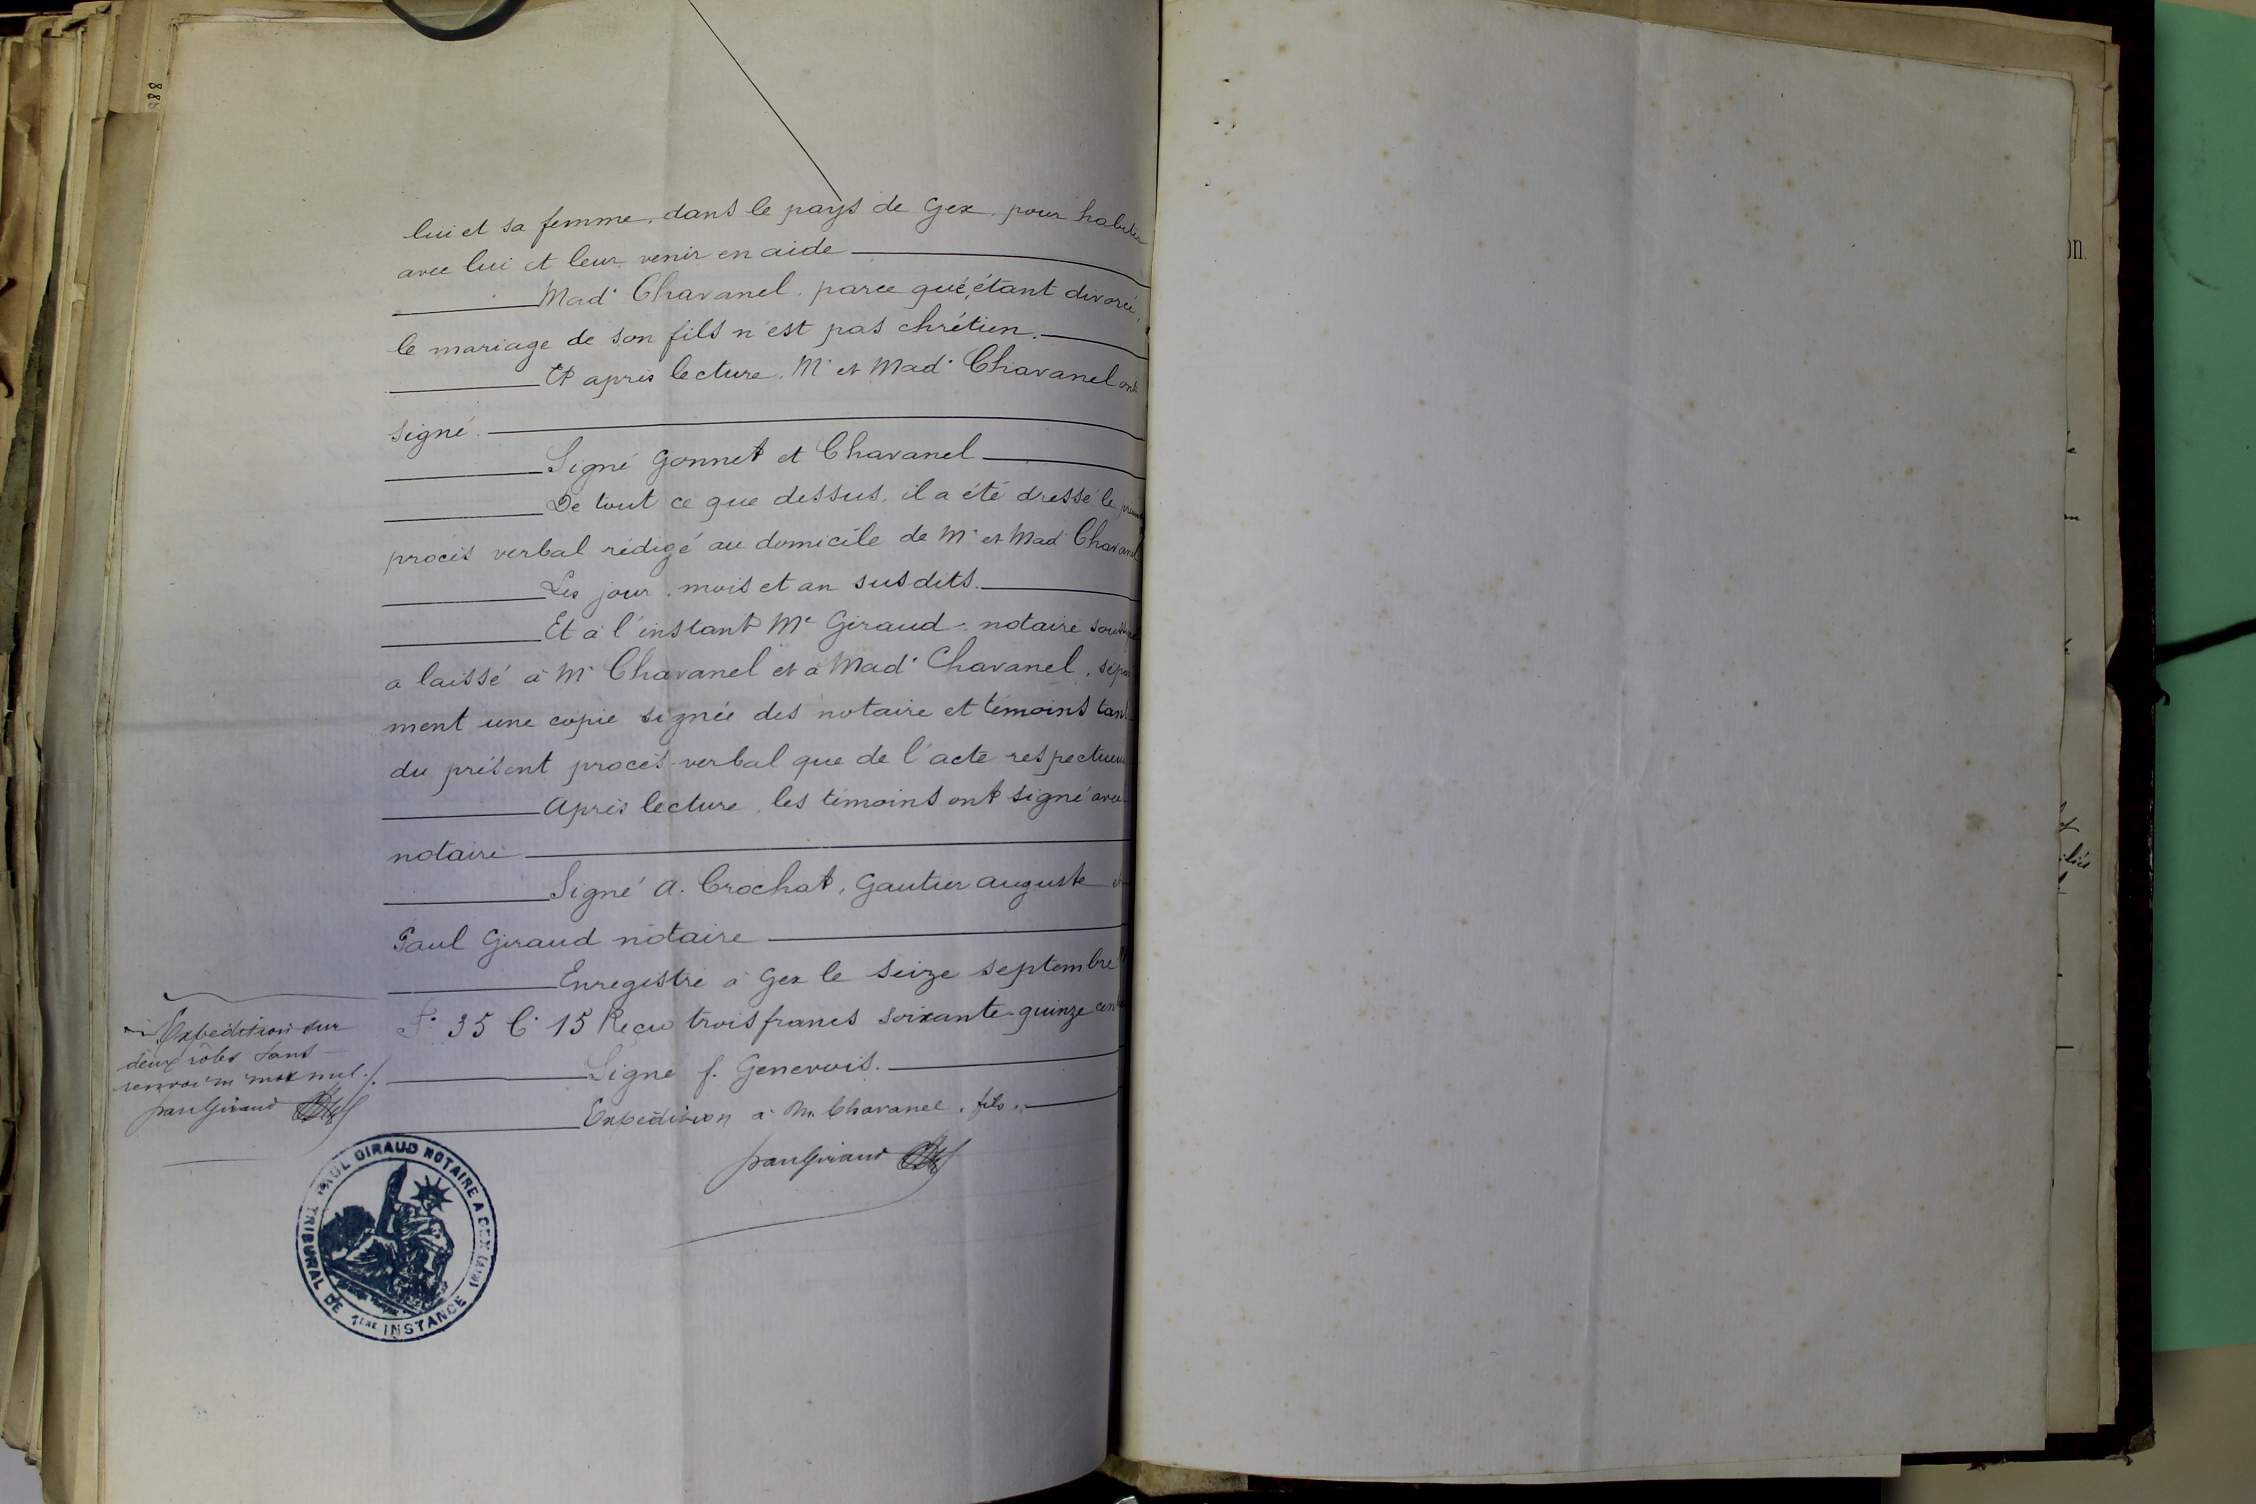 lui et sa femme, dans le pays de Gex, pour habiter
avec lui et leur venir en aide
Made Chavanel, parce que, étant divorcé,
le mariage de son fils n'est pas chrétien.
Et après lecture, Mr et Made Chavanel ont
signé.
Signé Gonnet et Chavanel
De tout ce que dessus, il a été dressé le
procès verbal rédigé au domicile de Mr et Made Chavanel
Les jour, mois et an susdits.
Et à l'instant Me Giraud, notaire
a laissé à Mr Chavanel et à Made Chavanel,
ment une copie signée des notaire et témoins tant
du présent procès-verbal que de l'acte respectueux
Après lecture, les témoins ont signé avec
notaire
Signé A. Crochat, Gautier Auguste et
Paul Giraud notaire
Enregistré à Gex le seize septembre
Fo 35 Co 15 Reçu trois francs soixante-quinze cent
Signé f. Genevois.
Expédition à Mr Chavanel, fils.
Paul Giraud
Expédition sur
deux rôles sans
renvoi ni mot nul
Paul Giraud
PAUL GIRAUD NOTAIRE A GEX (AIN)
TRIBUNAL DE 1ERE INSTANCE
88
on.